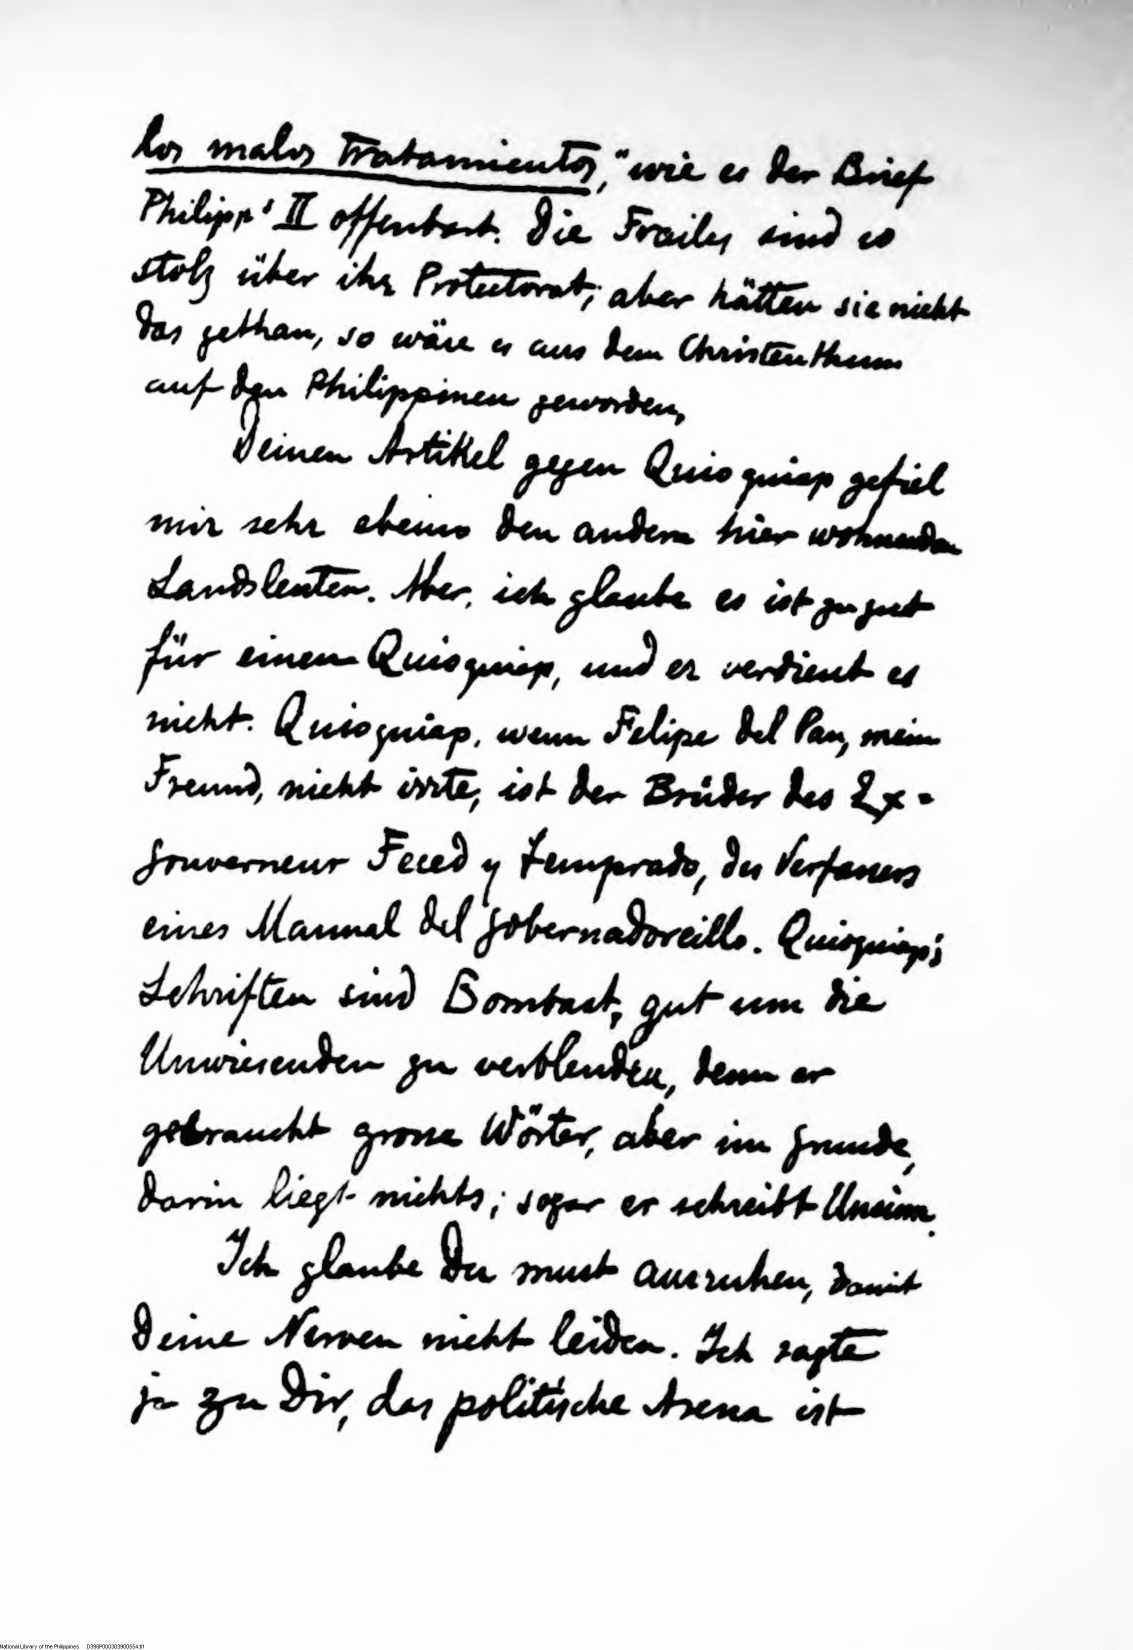 los malos tratamientos," wie es der Brief
Philipp's II offenbart. Die Frailes sind so
stolz über ihr Protectorat; aber hätten sie nicht
das gethan, so wäre es aus dem Christenthum
auf den Philippinen geworden,
Deinen Artikel gegen Quioquiap gefiel
mir sehr ebenso den andern hier wohnenden
Landsleuten. Aber, ich glaube es ist zu gut
für einen Quioquiap, und er verdient es
nicht. Quioquiap, wenn Felipe del Pan, mein
Freund, nicht irrte, ist der Brüder des Ex-
gouverneur Feced y Temprado, des Verfassers
eines Manual del gobernadorcillo. Quioquiap's
Schriften sind Bombast, gut um die
Unwissenden zu verblenden, denn er
gebraucht grosse Wörter, aber im Grunde,
darin liegt nichts; sogar er schreibt Unsinn.
Ich glaube Du must ausruhen, damit
Deine Nerven nicht leiden. Ich sagte
ja zu Dir, das politische Arena ist
National Library of the Philippines